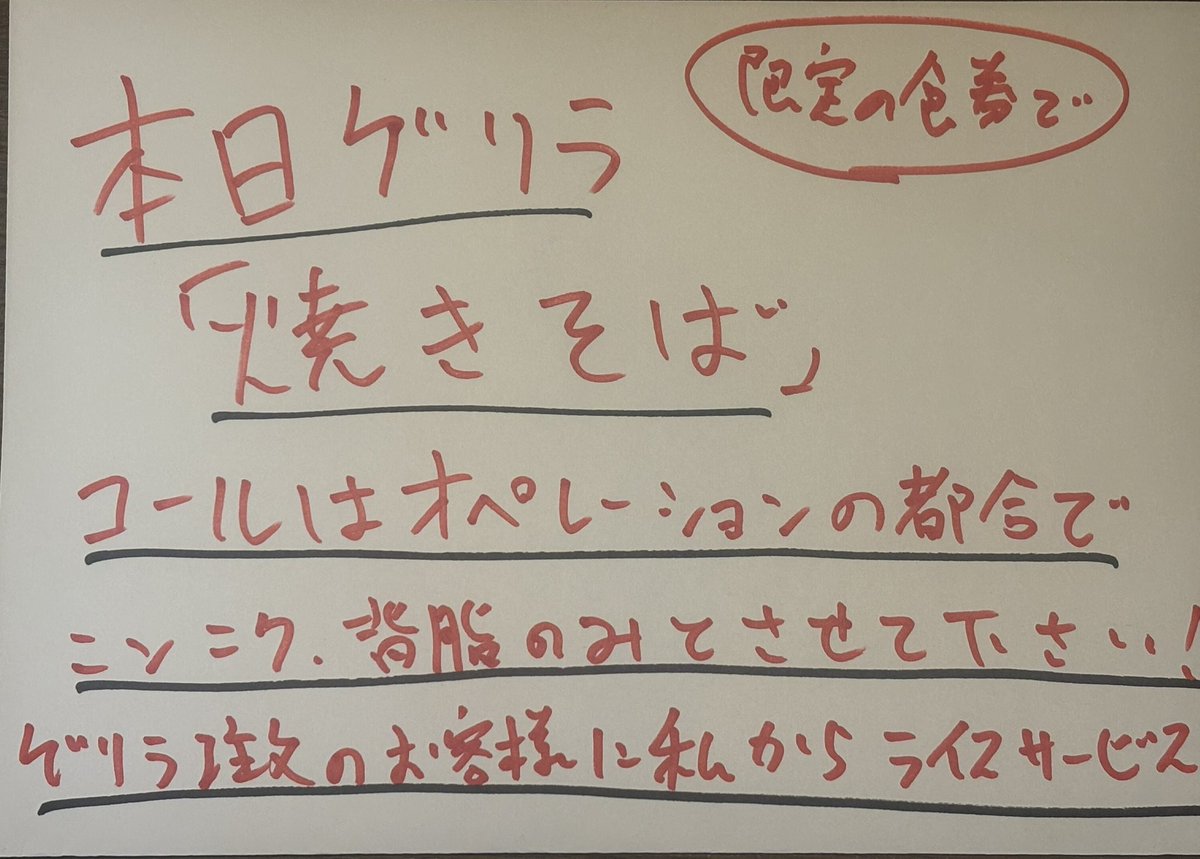 限定の食券で
本日ゲリラ
「焼きそば」
コールはオペレーションの都合で
ニンニク、背脂のみとさせて下さい!
ゲリラ注文のお客様に私からライスサービス